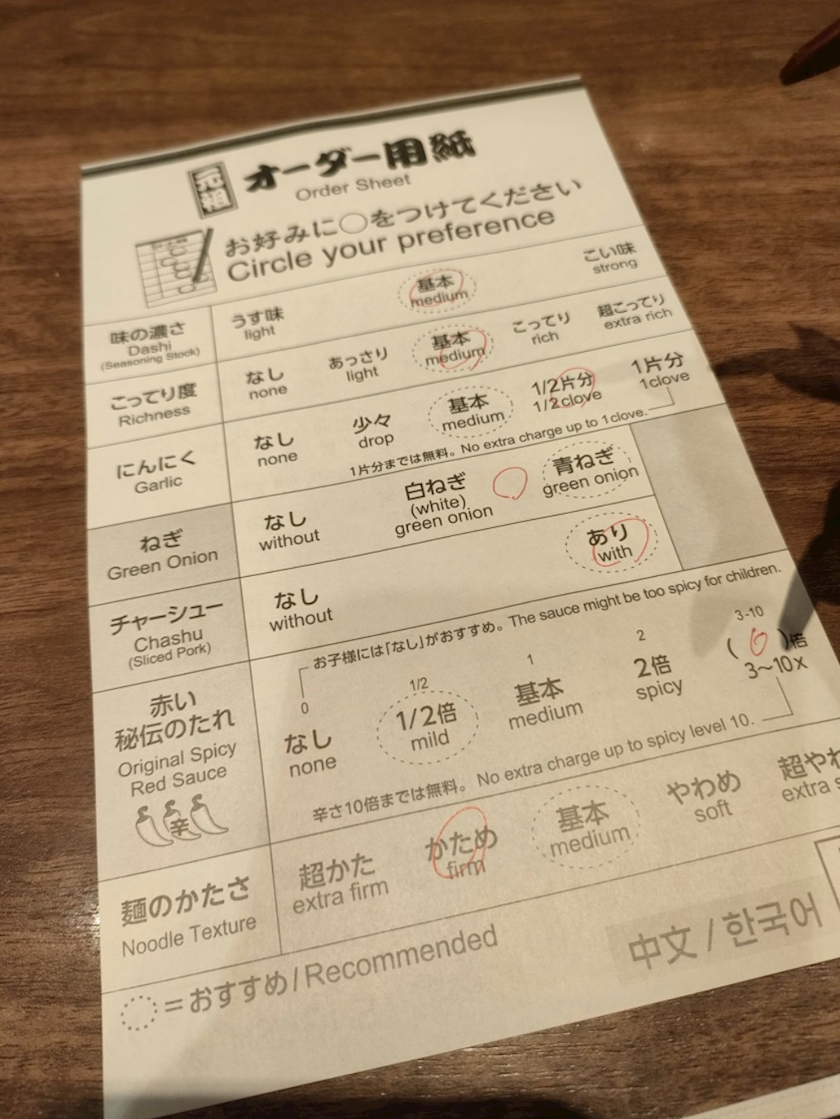 元祖 オーダー用紙
Order Sheet
お好みに○をつけてください
Circle your preference
味の濃さ
Dashi
(Seasoning Stock)
うす味
light
基本
medium
こい味
strong
こってり度
Richness
なし
none
あっさり
light
基本
medium
こってり
rich
超こってり
extra rich
にんにく
Garlic
なし
none
少々
drop
基本
medium
1/2片分
1/2clove
1片分
1clove
1片分までは無料。No extra charge up to 1clove.
ねぎ
Green Onion
なし
without
白ねぎ
(white)
green onion
青ねぎ
green onion
チャーシュー
Chashu
(Sliced Pork)
なし
without
あり
with
赤い
秘伝のたれ
Original Spicy
Red Sauce
辛
お子様には「なし」がおすすめ。The sauce might be too spicy for children.
0
なし
none
1/2
1/2倍
mild
1
基本
medium
2
2倍
spicy
3-10
( 6 )倍
3〜10x
辛さ10倍までは無料。 No extra charge up to spicy level 10.
麺のかたさ
Noodle Texture
超かた
extra firm
かため
firm
基本
medium
やわめ
soft
超やわ
extra
=おすすめ/Recommended
中文/한국어